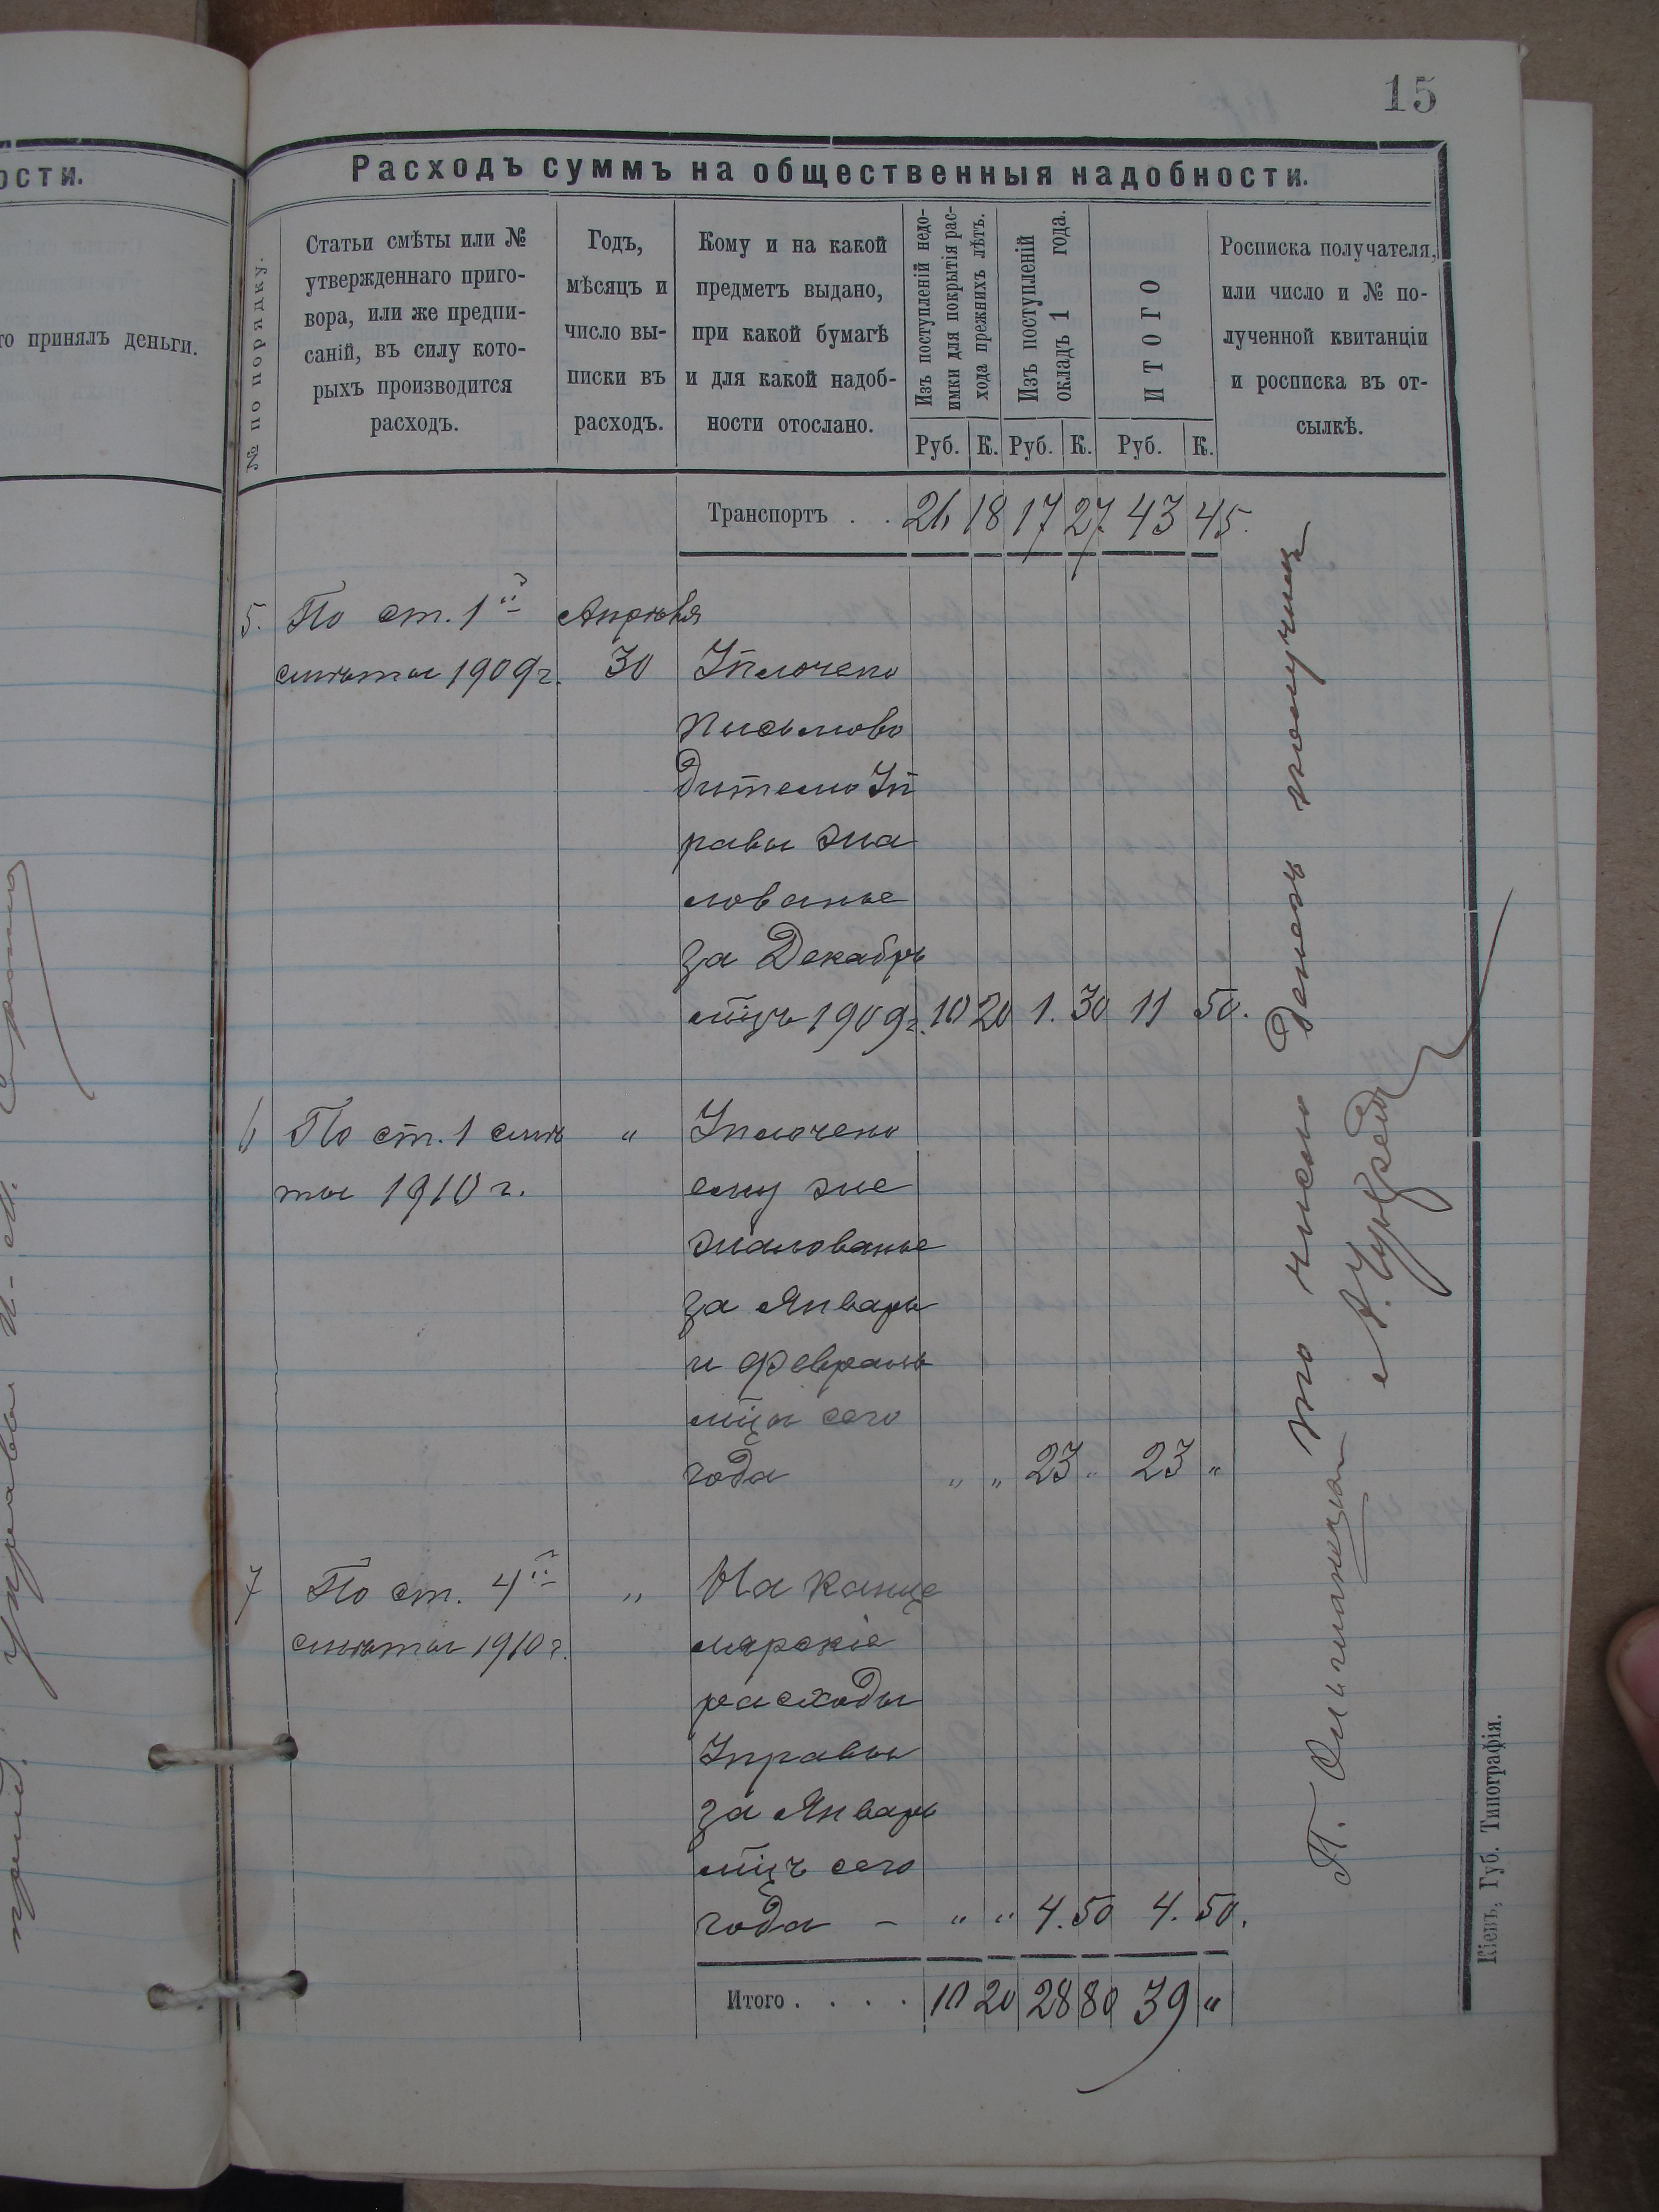 15
ости.
го принялъ деньги.
Расходъ суммъ на общественныя надобности.
№ по порядку.
Статьи смѣты или №
утвержденнаго приго-
вора, или же предпи-
саній, въ силу кото-
рыхъ производится
расходъ.
Годъ,
мѣсяцъ и
число вы-
писки въ
расходъ.
Кому и на какой
предметъ выдано,
при какой бумагѣ
и для какой надоб-
ности отослано.
Изъ поступленій недо-
имки для покрытія рас-
хода прежнихъ лѣтъ.
Изъ поступленій
окладъ 1 года.
ИТОГО
Росписка получателя,
или число и № по-
лученной квитанціи
и росписка въ от-
сылкѣ.
Руб. К. Руб. К. Руб. К.
Транспортъ . . 26 18 17 27. 43 45.
5. По ст. 1й Апрѣля
смѣты 1909 г. 30 Уплочено
письмово
дителю Уп
равы жа
лованье
за Декабрь
мцъ 1909 г. 10 20 1. 30 11 50.
6 По ст. 1 смѣ „ Уплочено
ты 1910 г. ему же
жалованье
за Январь
и Февраль
мцы сего
года „ „ 23 „ 23 „
7 По ст. 4й „ На канце
смѣты 1910 г. лярскіе
расходы
Управы
за Январь
мцъ сего
года – „ „ 4. 50 4. 50.
Итого . . . . 10 20 28 80 39 „
число денегъ получилъ
Кіевъ, Губ. Типографія.